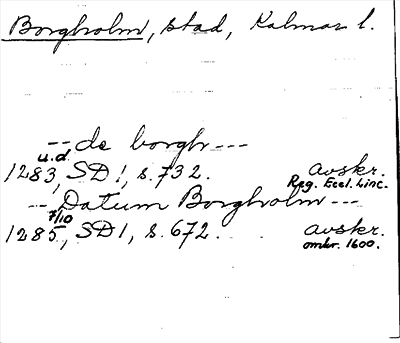 Borgholm, stad, Kalmar l.
-- de borgh ---
u.d.
1283, SD 1, s. 732. Avskr.
Reg. Eccl. Linc.
-- Datum Borgholm ---
7/10
1285, SD 1, s. 672. Avskr.
omkr. 1600.